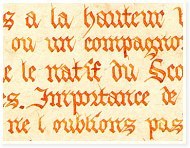 s a la hauteur
ou un compagno
e le natif du Sco
s. Importance de
ne l oublions pas